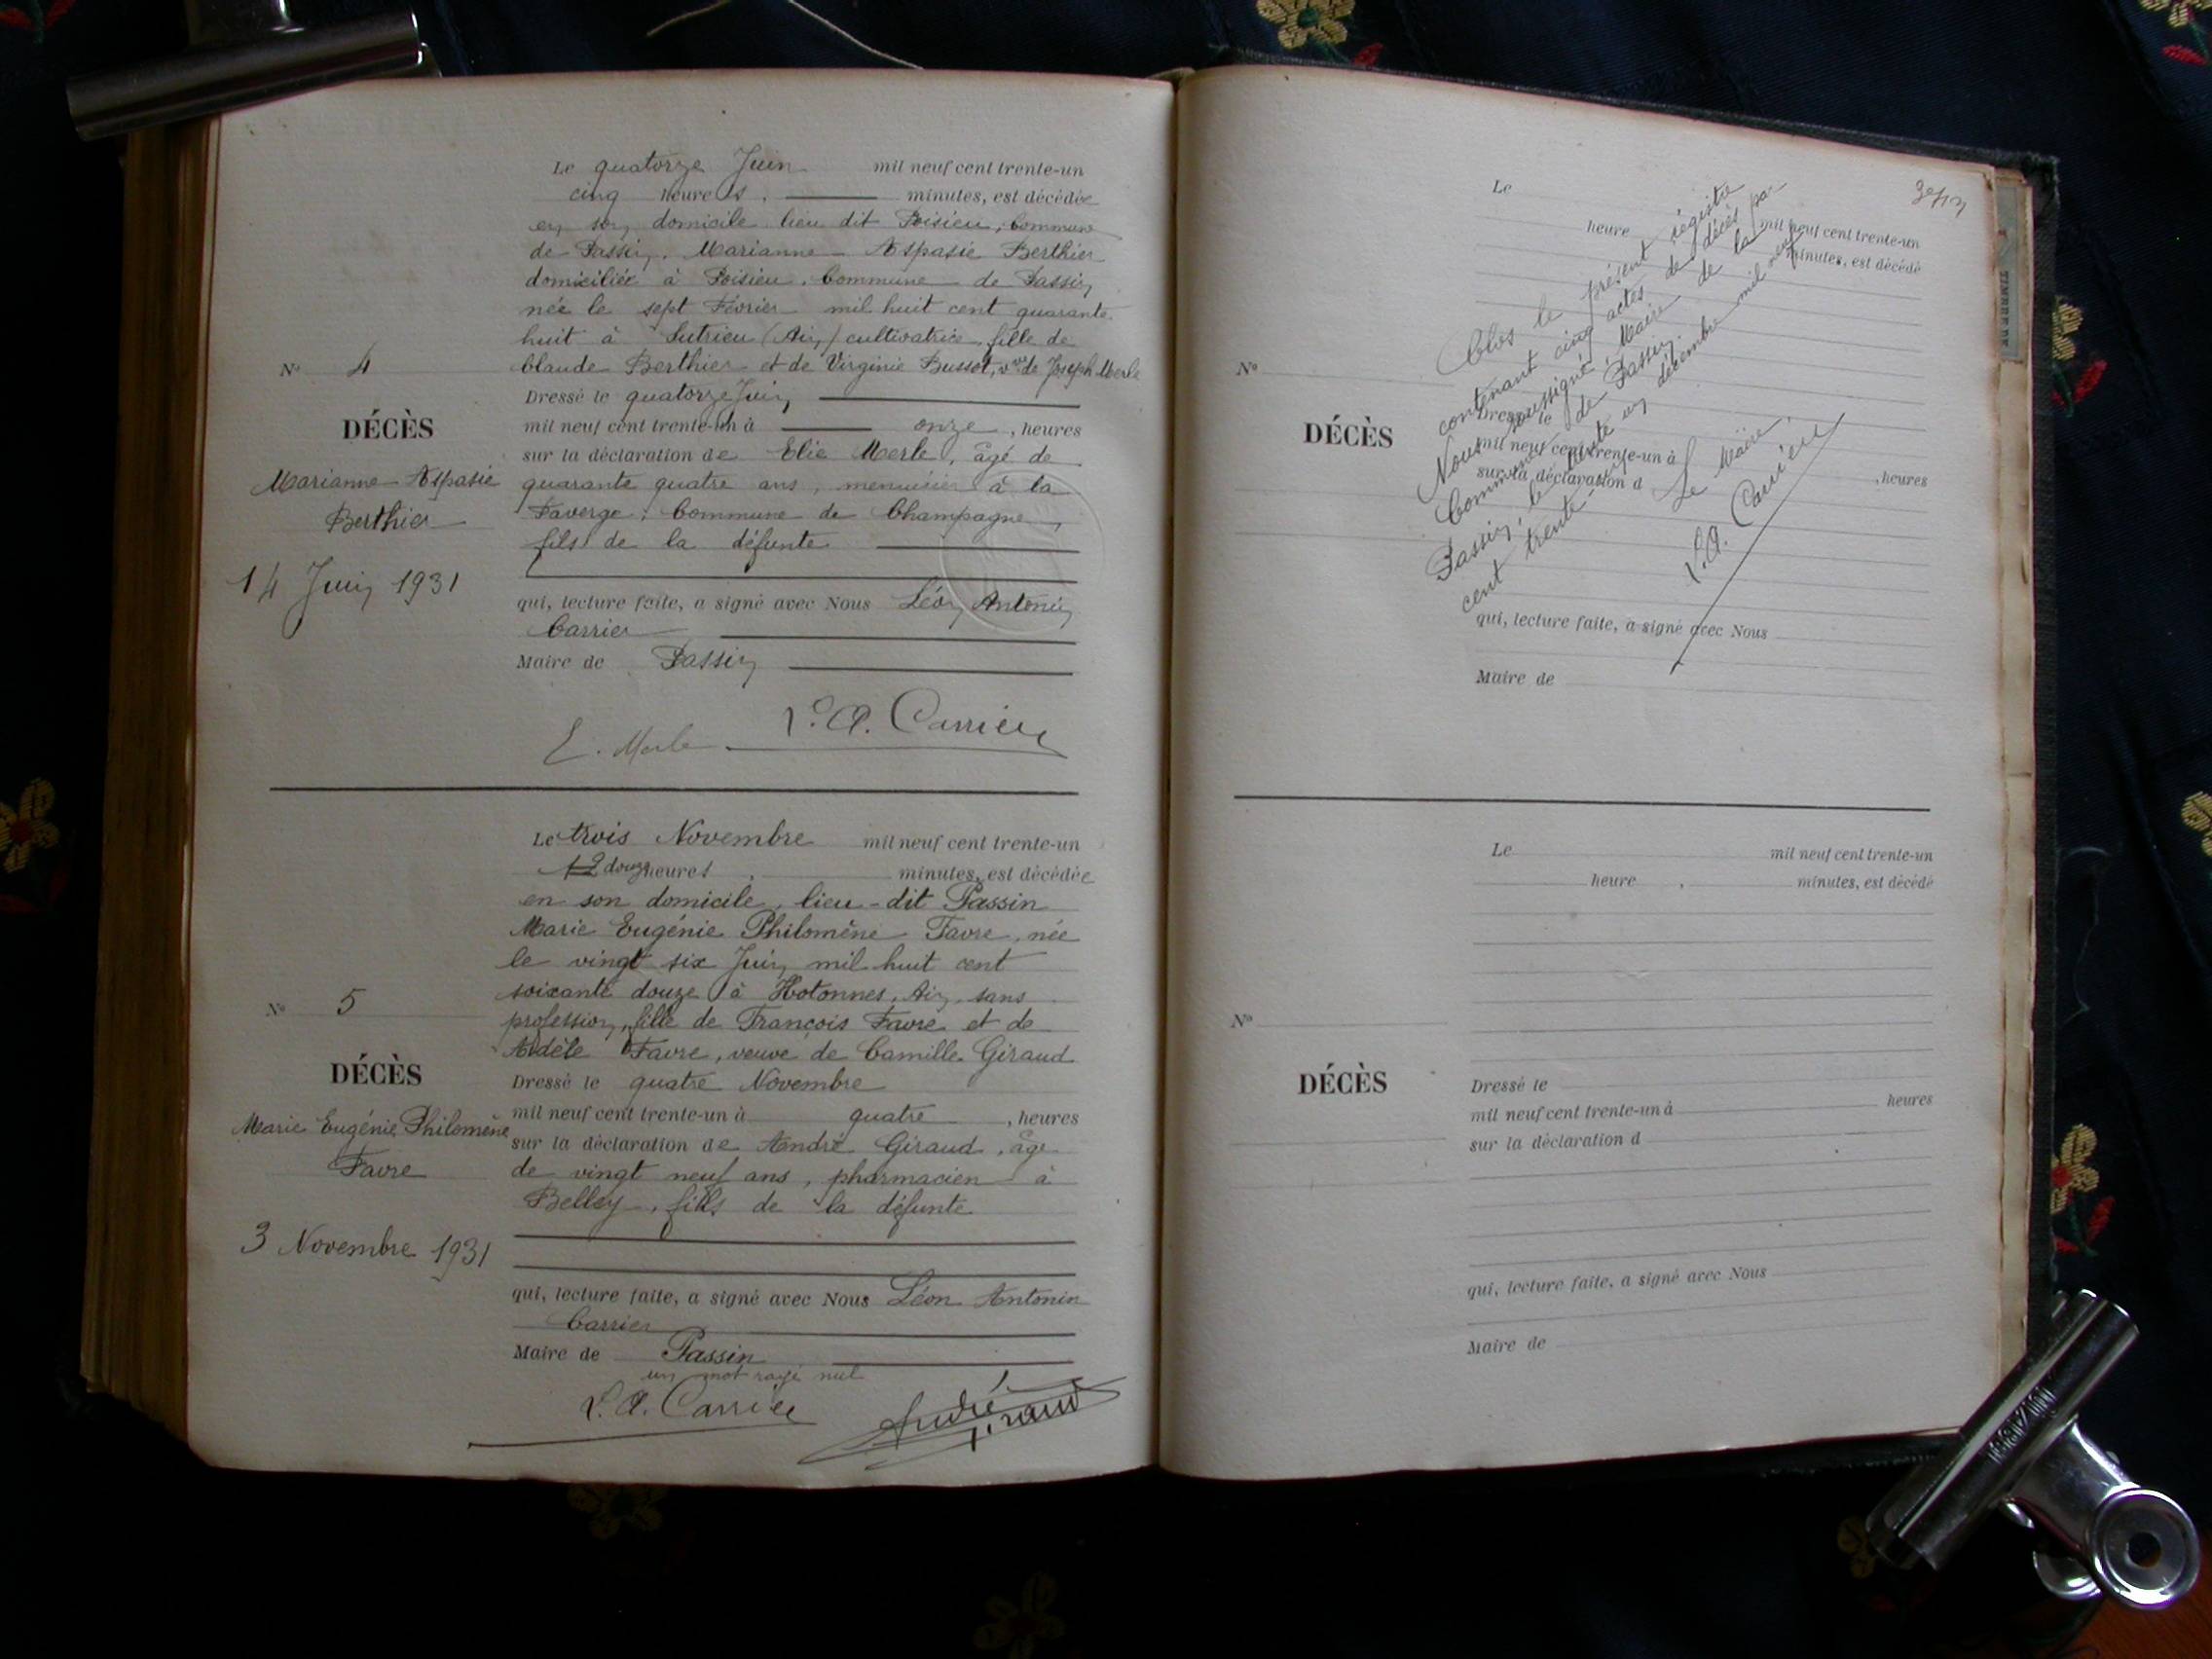 Le quatorze Juin mil neuf cent trente-un
cinq heures, minutes, est décédée
en son domicile lieu dit Poisieu, Commune
de Passin, Marianne Aspasie Berthier
domiciliée à Poisieu, Commune de Passin
née le sept Février mil huit cent quarante
huit à Sutrieu (Ain) cultivatrice, fille de
Claude Berthier et de Virginie Bussot, vve de Joseph Merle
Nº 4
Dressé le quatorze Juin
DÉCÈS
mil neuf cent trente-un à onze, heures
sur la déclaration de Elie Merle, âgé de
Marianne Aspasie
quarante quatre ans, menuisier à la
Berthier
Faverge, Commune de Champagne,
fils de la défunte
14 Juin 1931
qui, lecture faite, a signé avec Nous Léon Antonin
Carrier
Maire de Passin
E. Merle L. A. Carrier
Le trois Novembre mil neuf cent trente-un
12 douze heures, minutes, est décédée
en son domicile, lieu-dit Passin
Marie Eugénie Philomène Favre, née
le vingt six Juin mil huit cent
soixante douze à Hotonnes, Ain, sans
profession, fille de François Favre et de
Adèle Favre, veuve de Camille Giraud
Nº 5
Dressé le quatre Novembre
DÉCÈS
mil neuf cent trente-un à quatre, heures
Marie Eugénie Philomène
sur la déclaration de André Giraud, âgé
Favre
de vingt neuf ans, pharmacien à
Belley, fils de la défunte
3 Novembre 1931
qui, lecture faite, a signé avec Nous Léon Antonin
Carrier
Maire de Passin
un mot rayé nul
L. A. Carrier André Giraud
Le mil neuf cent trente-un
heure minutes, est décédé
Nº
DÉCÈS
Dressé le
mil neuf cent trente-un à , heures
sur la déclaration d
qui, lecture faite, a signé avec Nous
Maire de
Clos le présent régistre
contenant cinq actes de décès par
Nous soussigné Maire de la
Commune de Passin
Passin, le trente un décembre mil neuf
cent trente
Le Maire,
L. A. Carrier
Le mil neuf cent trente-un
heure , minutes, est décédé
Nº
DÉCÈS
Dressé le
mil neuf cent trente-un à heures
sur la déclaration d
qui, lecture faite, a signé avec Nous
Maire de